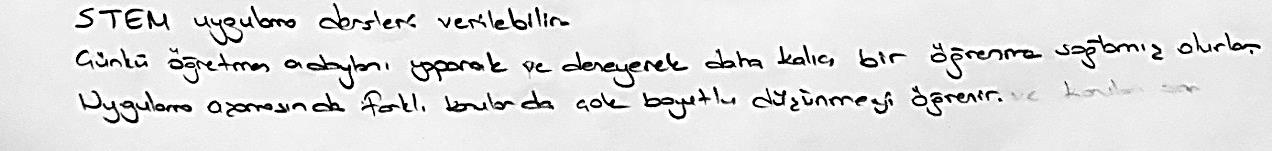 STEM uygulama dersleri verilebilir.
Çünkü öğretmen adayları yaparak ve deneyerek daha kalıcı bir öğrenme sağlamış olurlar.
Uygulama aşamasında farklı konularda çok boyutlu düşünmeyi öğrenir. ve